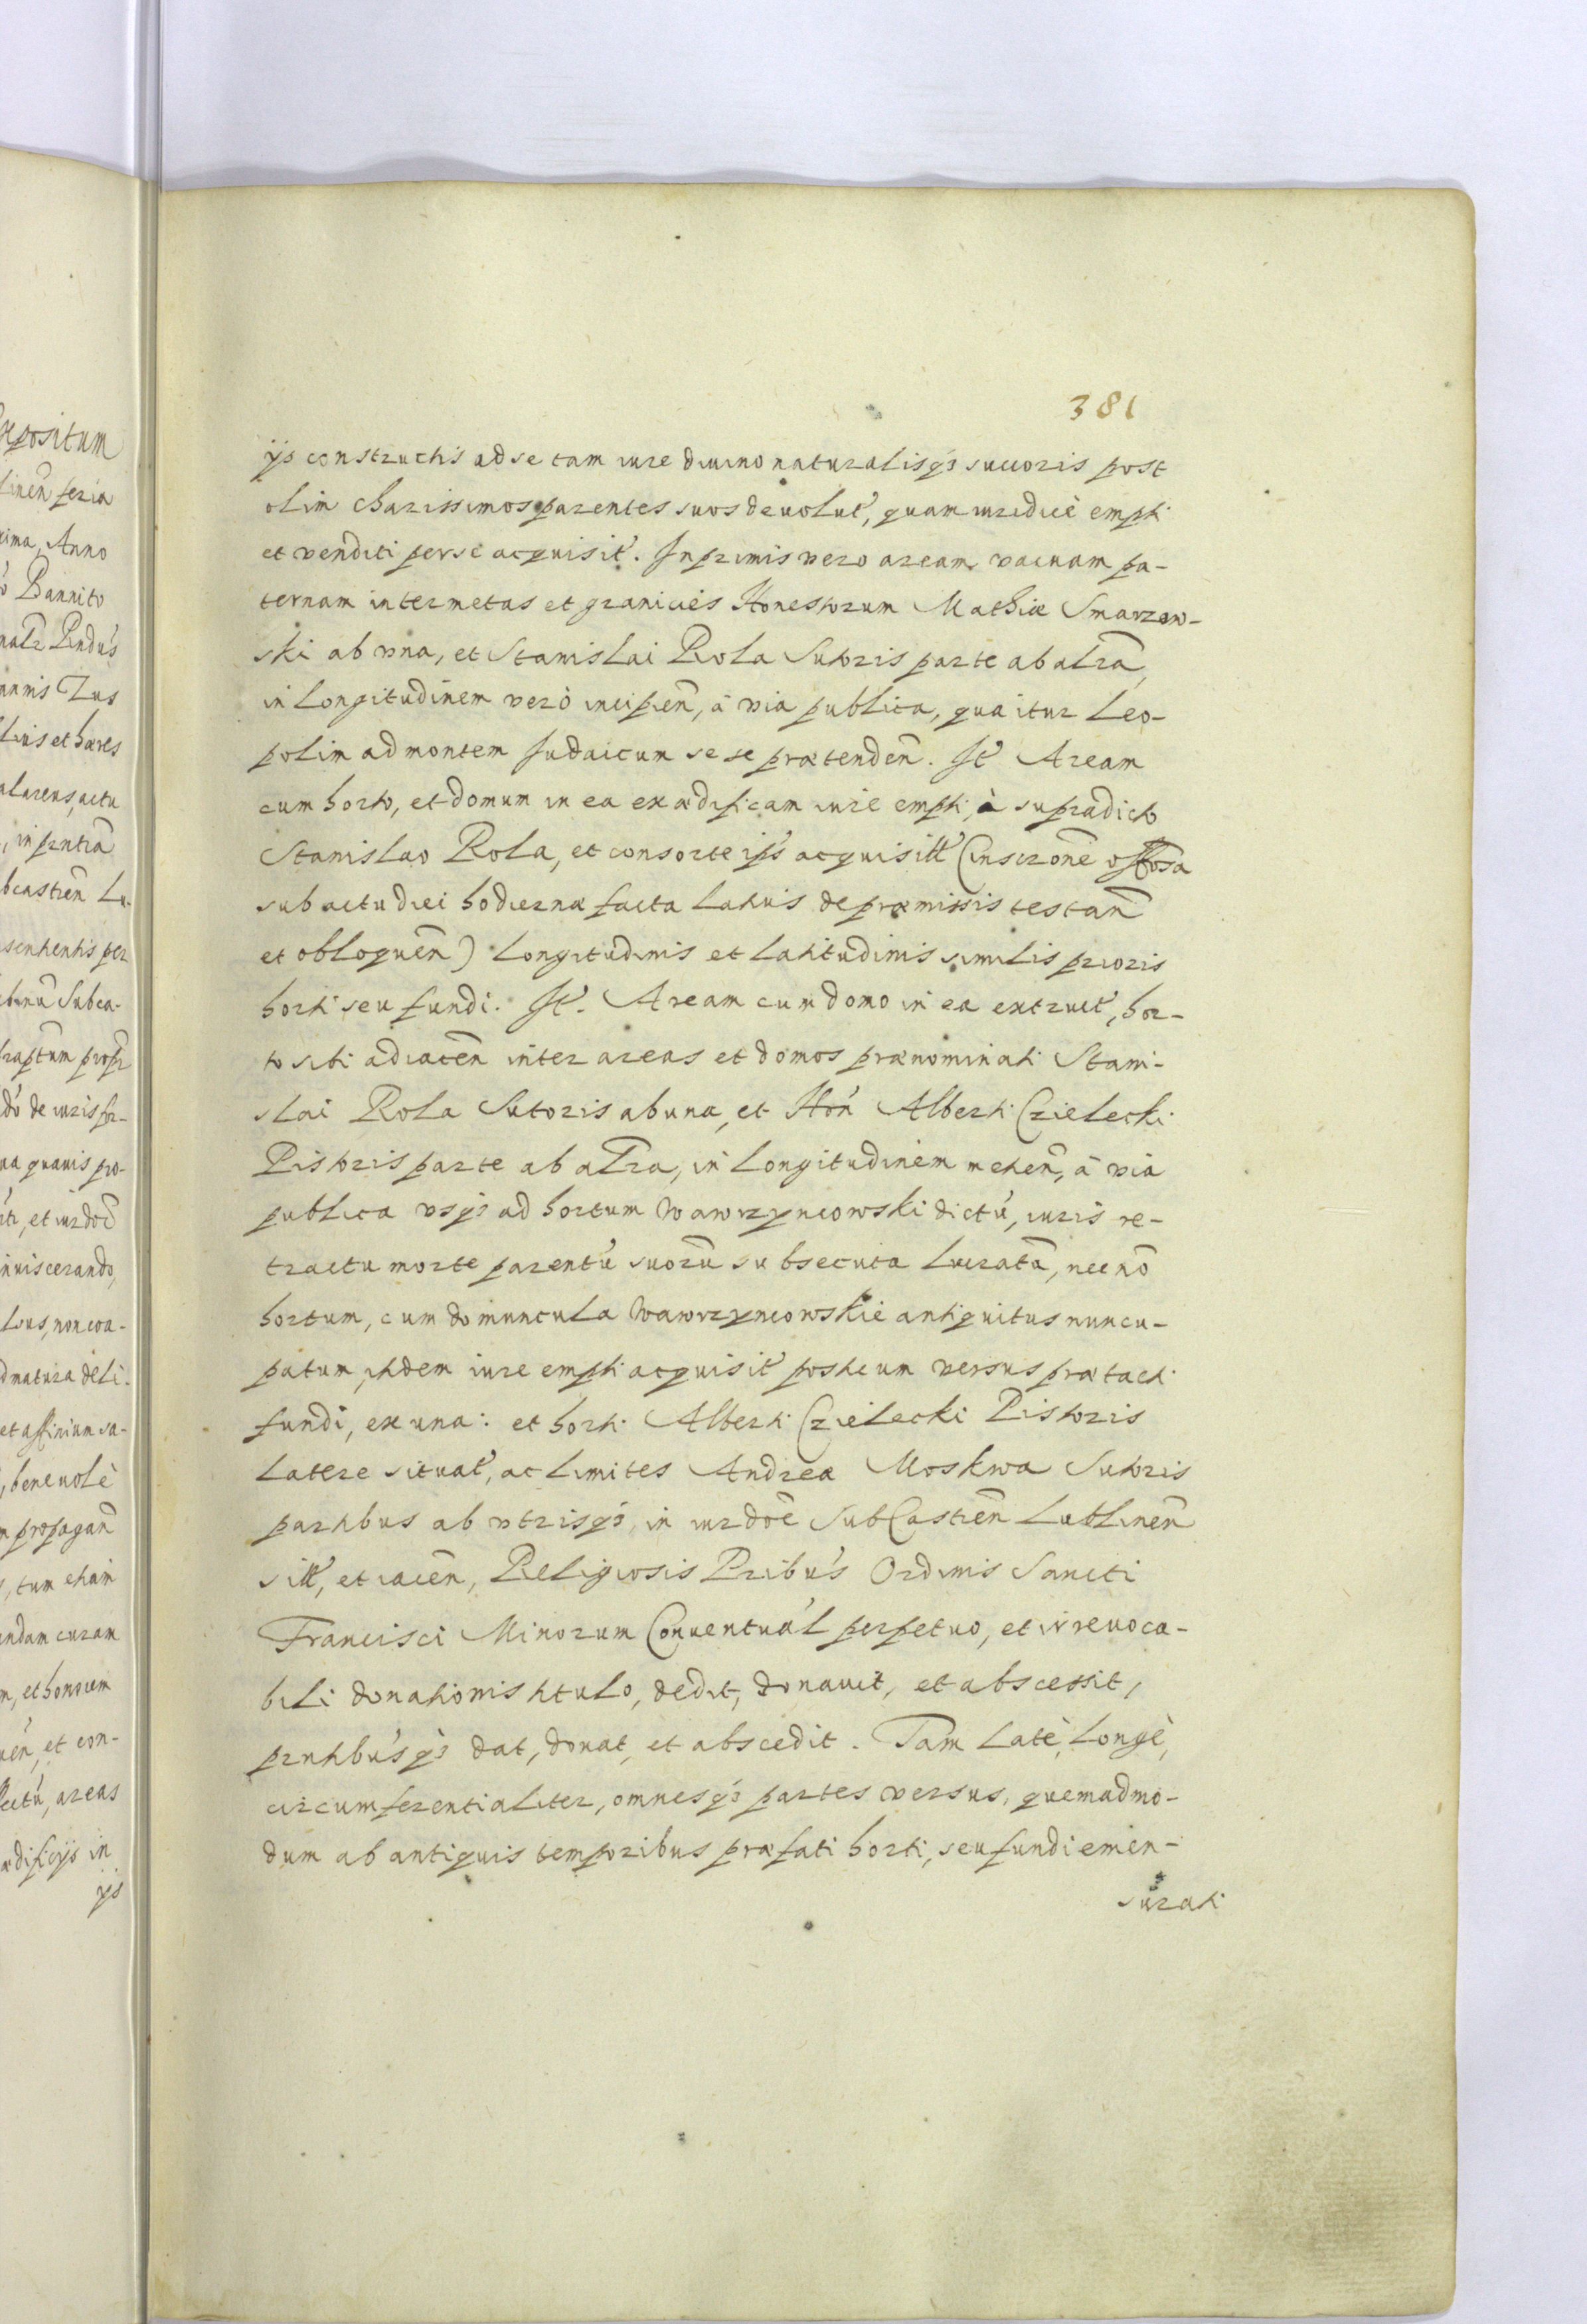 381
ijs constructis ad se tam iure diuino naturalisq3 succoris post
olim charissimos parentes suos deuolut, quam iuridicè empti
et venditi per se acquisit. Inprimis vero aream vacuam pa-
ternam inter metas et granicies Honestorum Mathiæ Smarzow-
ski ab vna, et Stanislai Rola Sutoris parte ab altra,
in longitudinem verò incipien, à via publica, qua itur Leo-
polim ad montem Judaicum se se prætenden. It Aream
cum horto, et domum in ea exædificam iure empti, à supradicto
Stanislao Rola, et consorte ips acquisitt (inscrone
sub actu diei hodiernæ facta latius de præmissis testan
et obloquen) longitudinis et latitudinis similis prioris
horti seu fundi. It. Aream cum domo in ea extruct, hor-
to sibi adiacen inter areas et domos prænominati Stani-
slai Rola Sutoris ab una, et Hon Alberti Czielecki
Pistoris parte ab altra, in longitudinem meten, à via
publica vsq3 ad hortum Wawrzyncowski dictu, iuris re-
tractu morte parentu suoru subsecuta lucrata, necno
hortum, cum domuncula Wawrzyncowskie antiquitus nuncu-
patum, itidem iure empti acquisit posticum versus prætacti
fundi, ex una: et horti Alberti Czielecki Pistoris
latere situat, ac limites Andreæ Moskwa Sutoris
partibus ab vtrisq3, in iurdoe SubCastren Lublinen
sitt, et iacen, Religiosis Pribus Ordinis Sancti
Francisci Minorum Conuentual perpetuo, et irreuoca-
bili donationis titulo, dedit, donauit, et abscessit,
prntibusq3 dat, donat, et abscedit. Tam latè, longè,
circumferentialiter, omnesq3 partes versus, quemadmo-
dum ab antiquis temporibus præfati horti, seu fundi emen-
surati
positum
linen feria
xima, Anno
Bannito
annis Zus
et hæres
, in prntia
bcastren Lu-
sentientis per
Subca-
de iuris
quauis pro-
et iurdoe
inuiscerando,
non coa-
natura deli-
et affinium sa-
, beneuolè
propagan
, tum etiam
endam curam
et con-
areas
ædificijs in
ijs